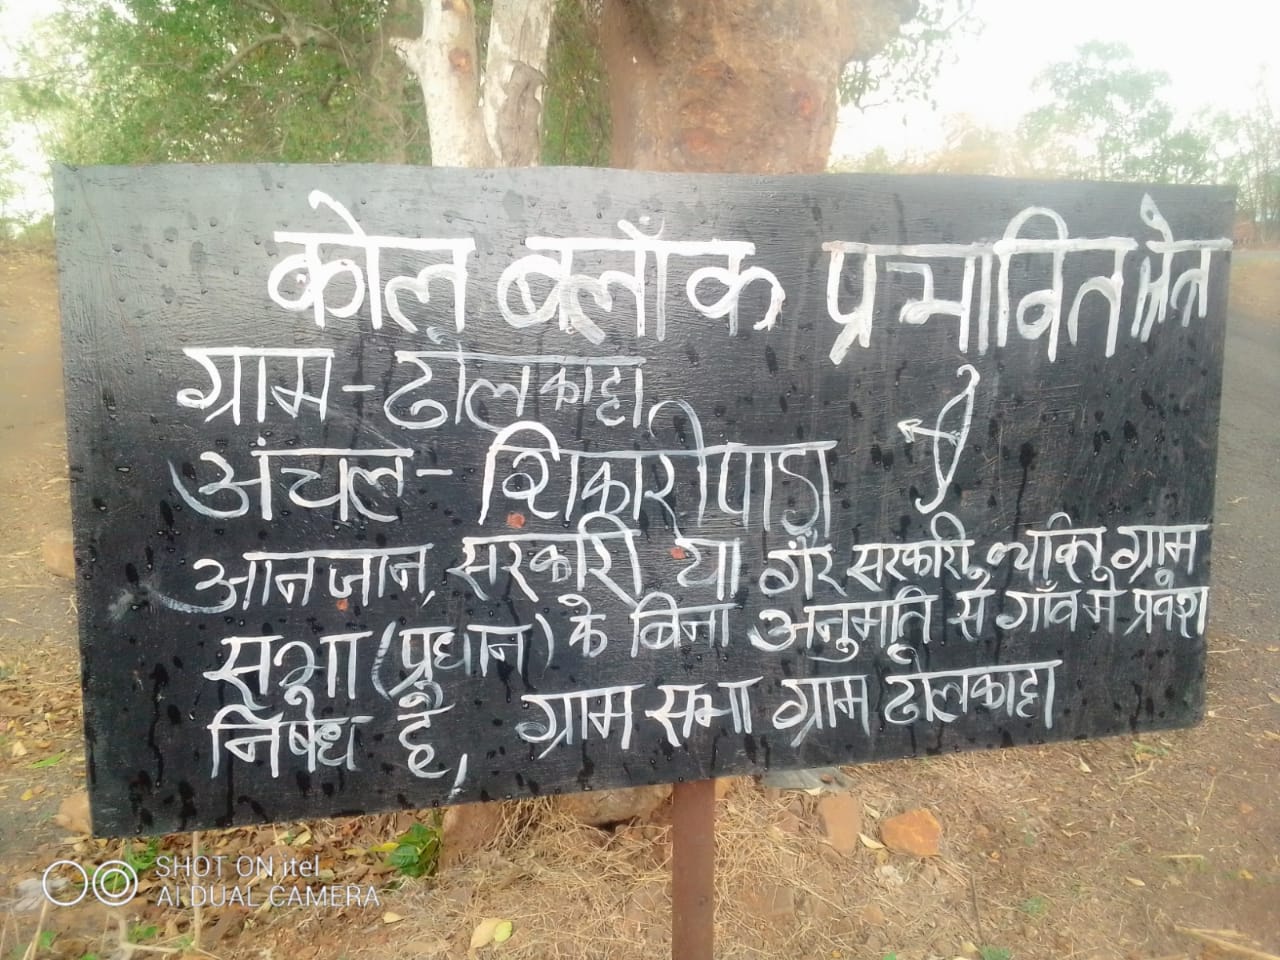 कोल ब्लॉक प्रभावित क्षेत्र
ग्राम - ढोलकाट्टा
अंचल - शिकारीपाड़ा
आनजान, सरकारी या गैर सरकारी व्यक्ति ग्राम
सभा (प्रधान) के बिना अनुमति से गाँव में प्रवेश
निषेध है, ग्राम सभा ग्राम ढोलकाट्टा
SHOT ON itel
AI DUAL CAMERA